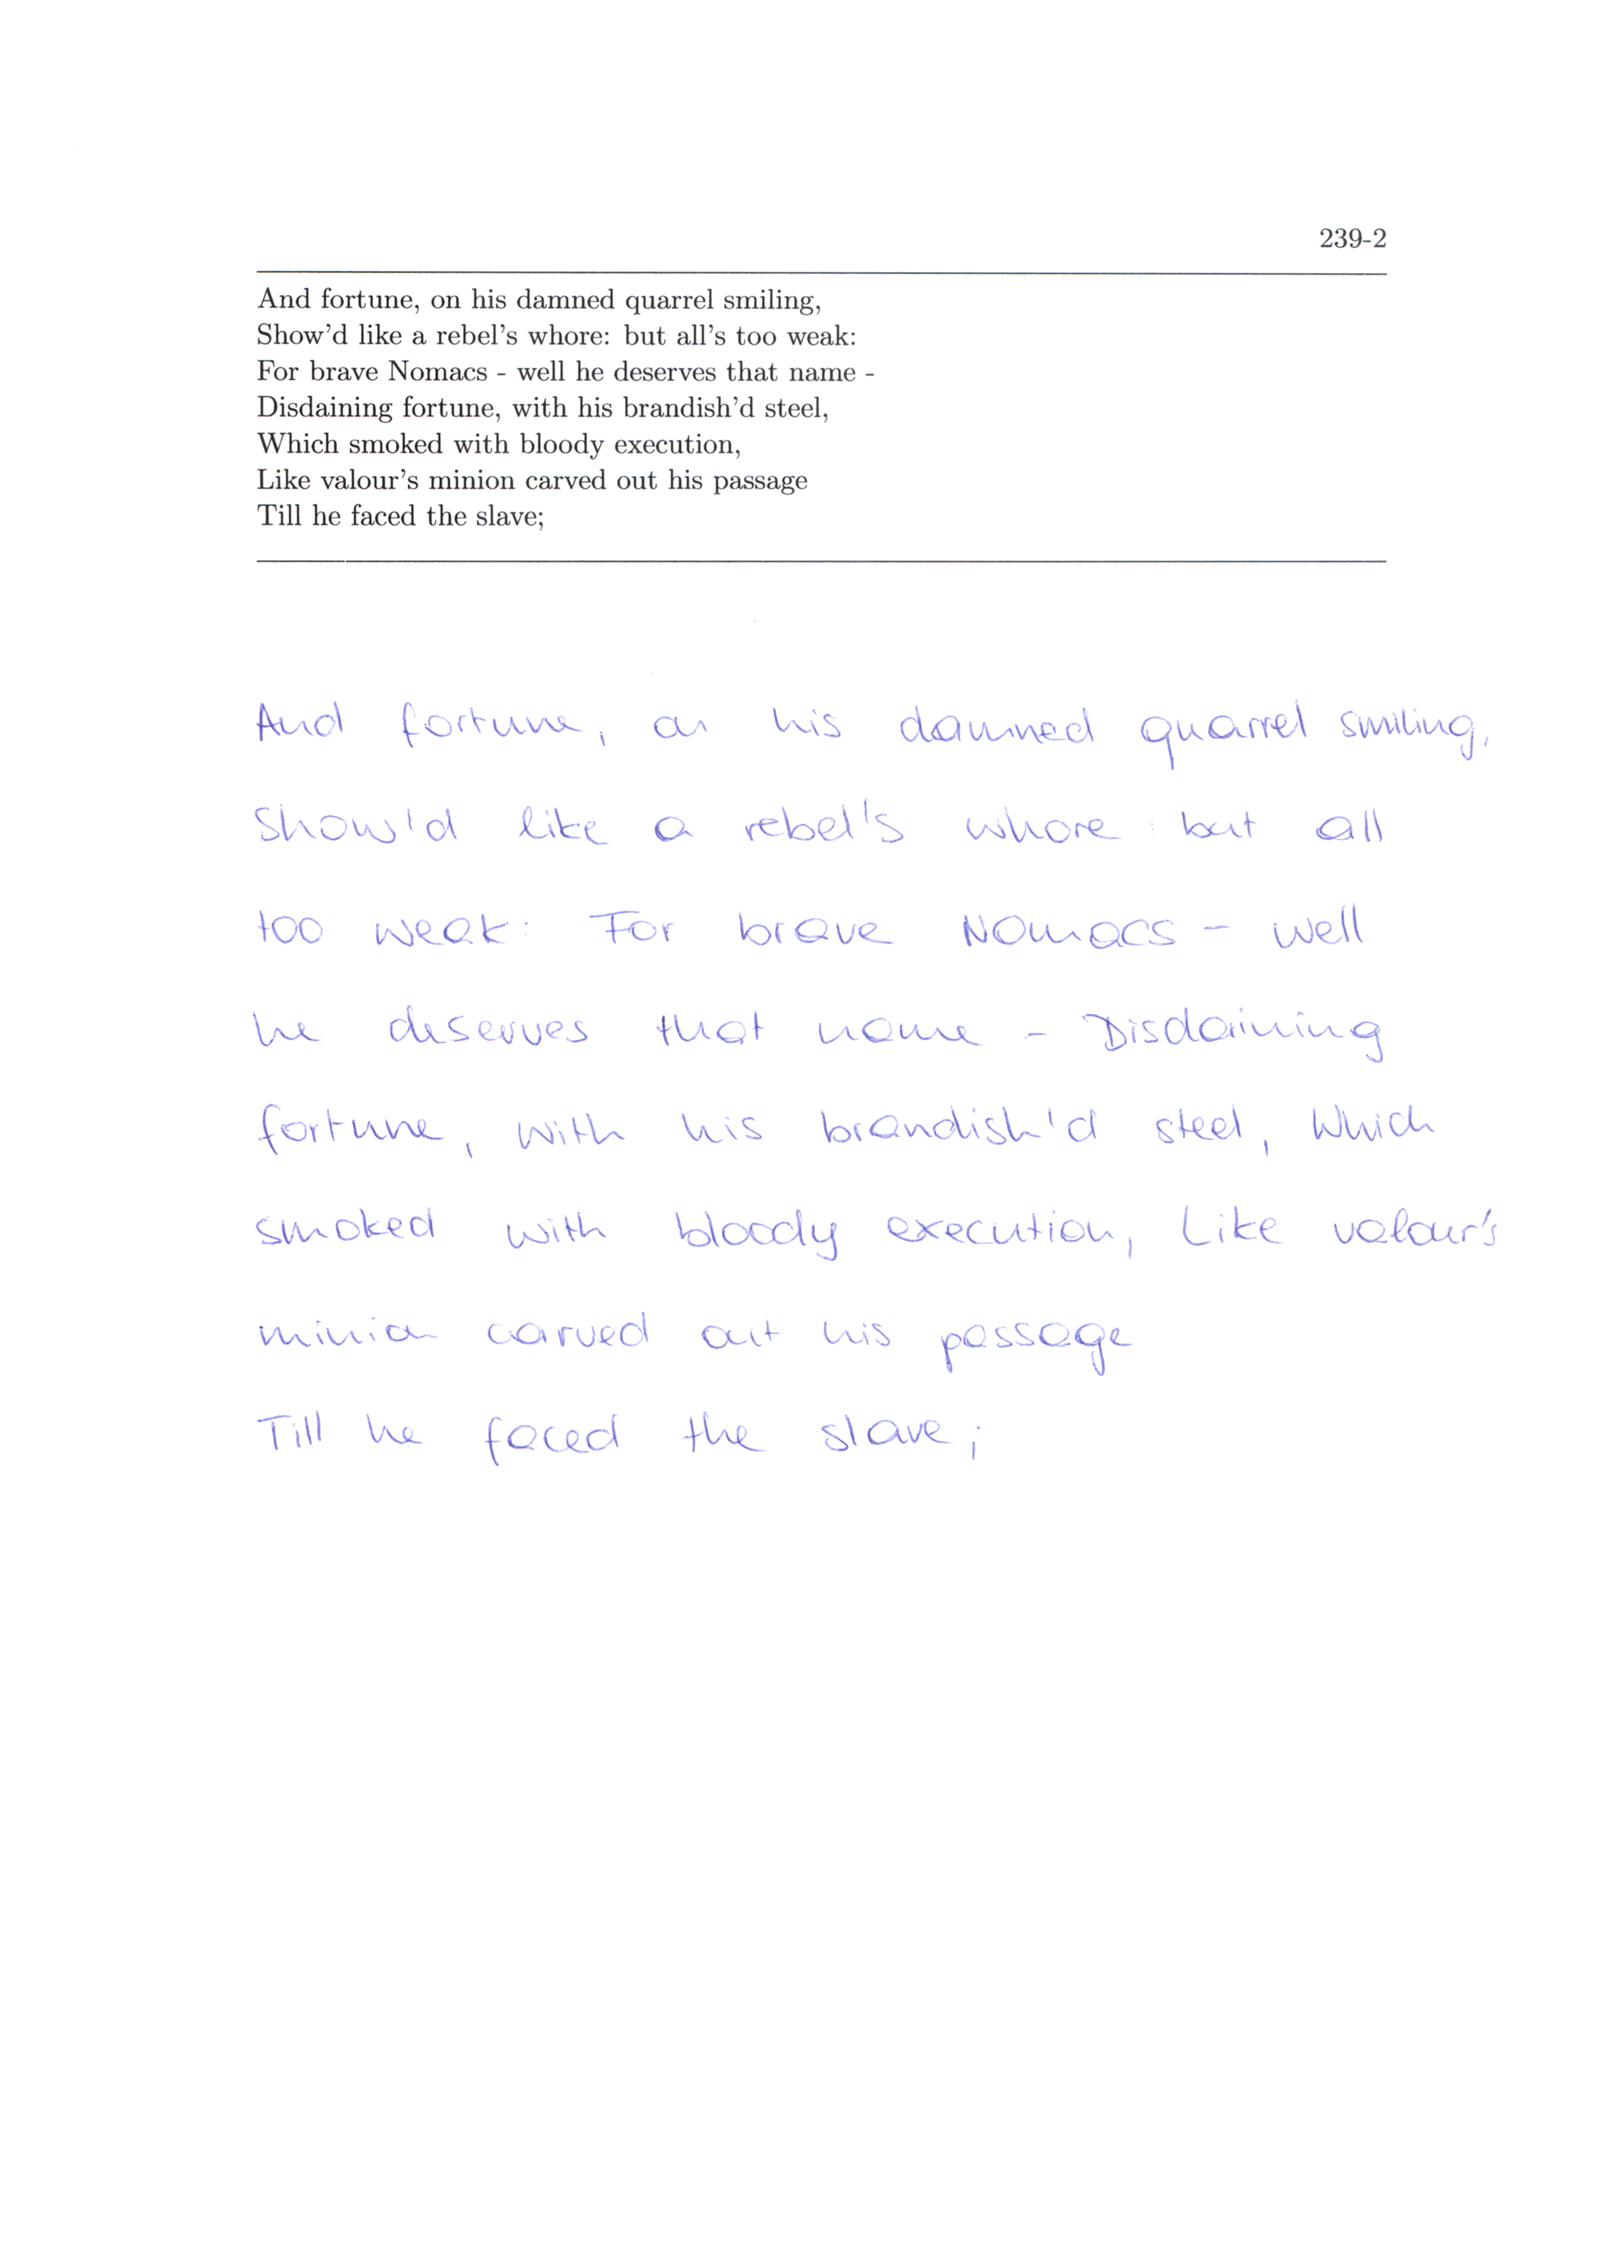 239-2
And fortune, on his damned quarrel smiling,
Show'd like a rebel's whore: but all's too weak:
For brave Nomacs - well he deserves that name -
Disdaining fortune, with his brandish'd steel,
Which smoked with bloody execution,
Like valour's minion carved out his passage
Till he faced the slave;
And fortune, on his damned quarrel smiling,
Show'd like a rebel's whore: but all
too weak: For brave Nomacs - well
he deserves that name - Disdaining
fortune, with his brandish'd steel, Which
smoked with bloody execution, Like valour's
minion carved out his passage
Till he faced the slave;